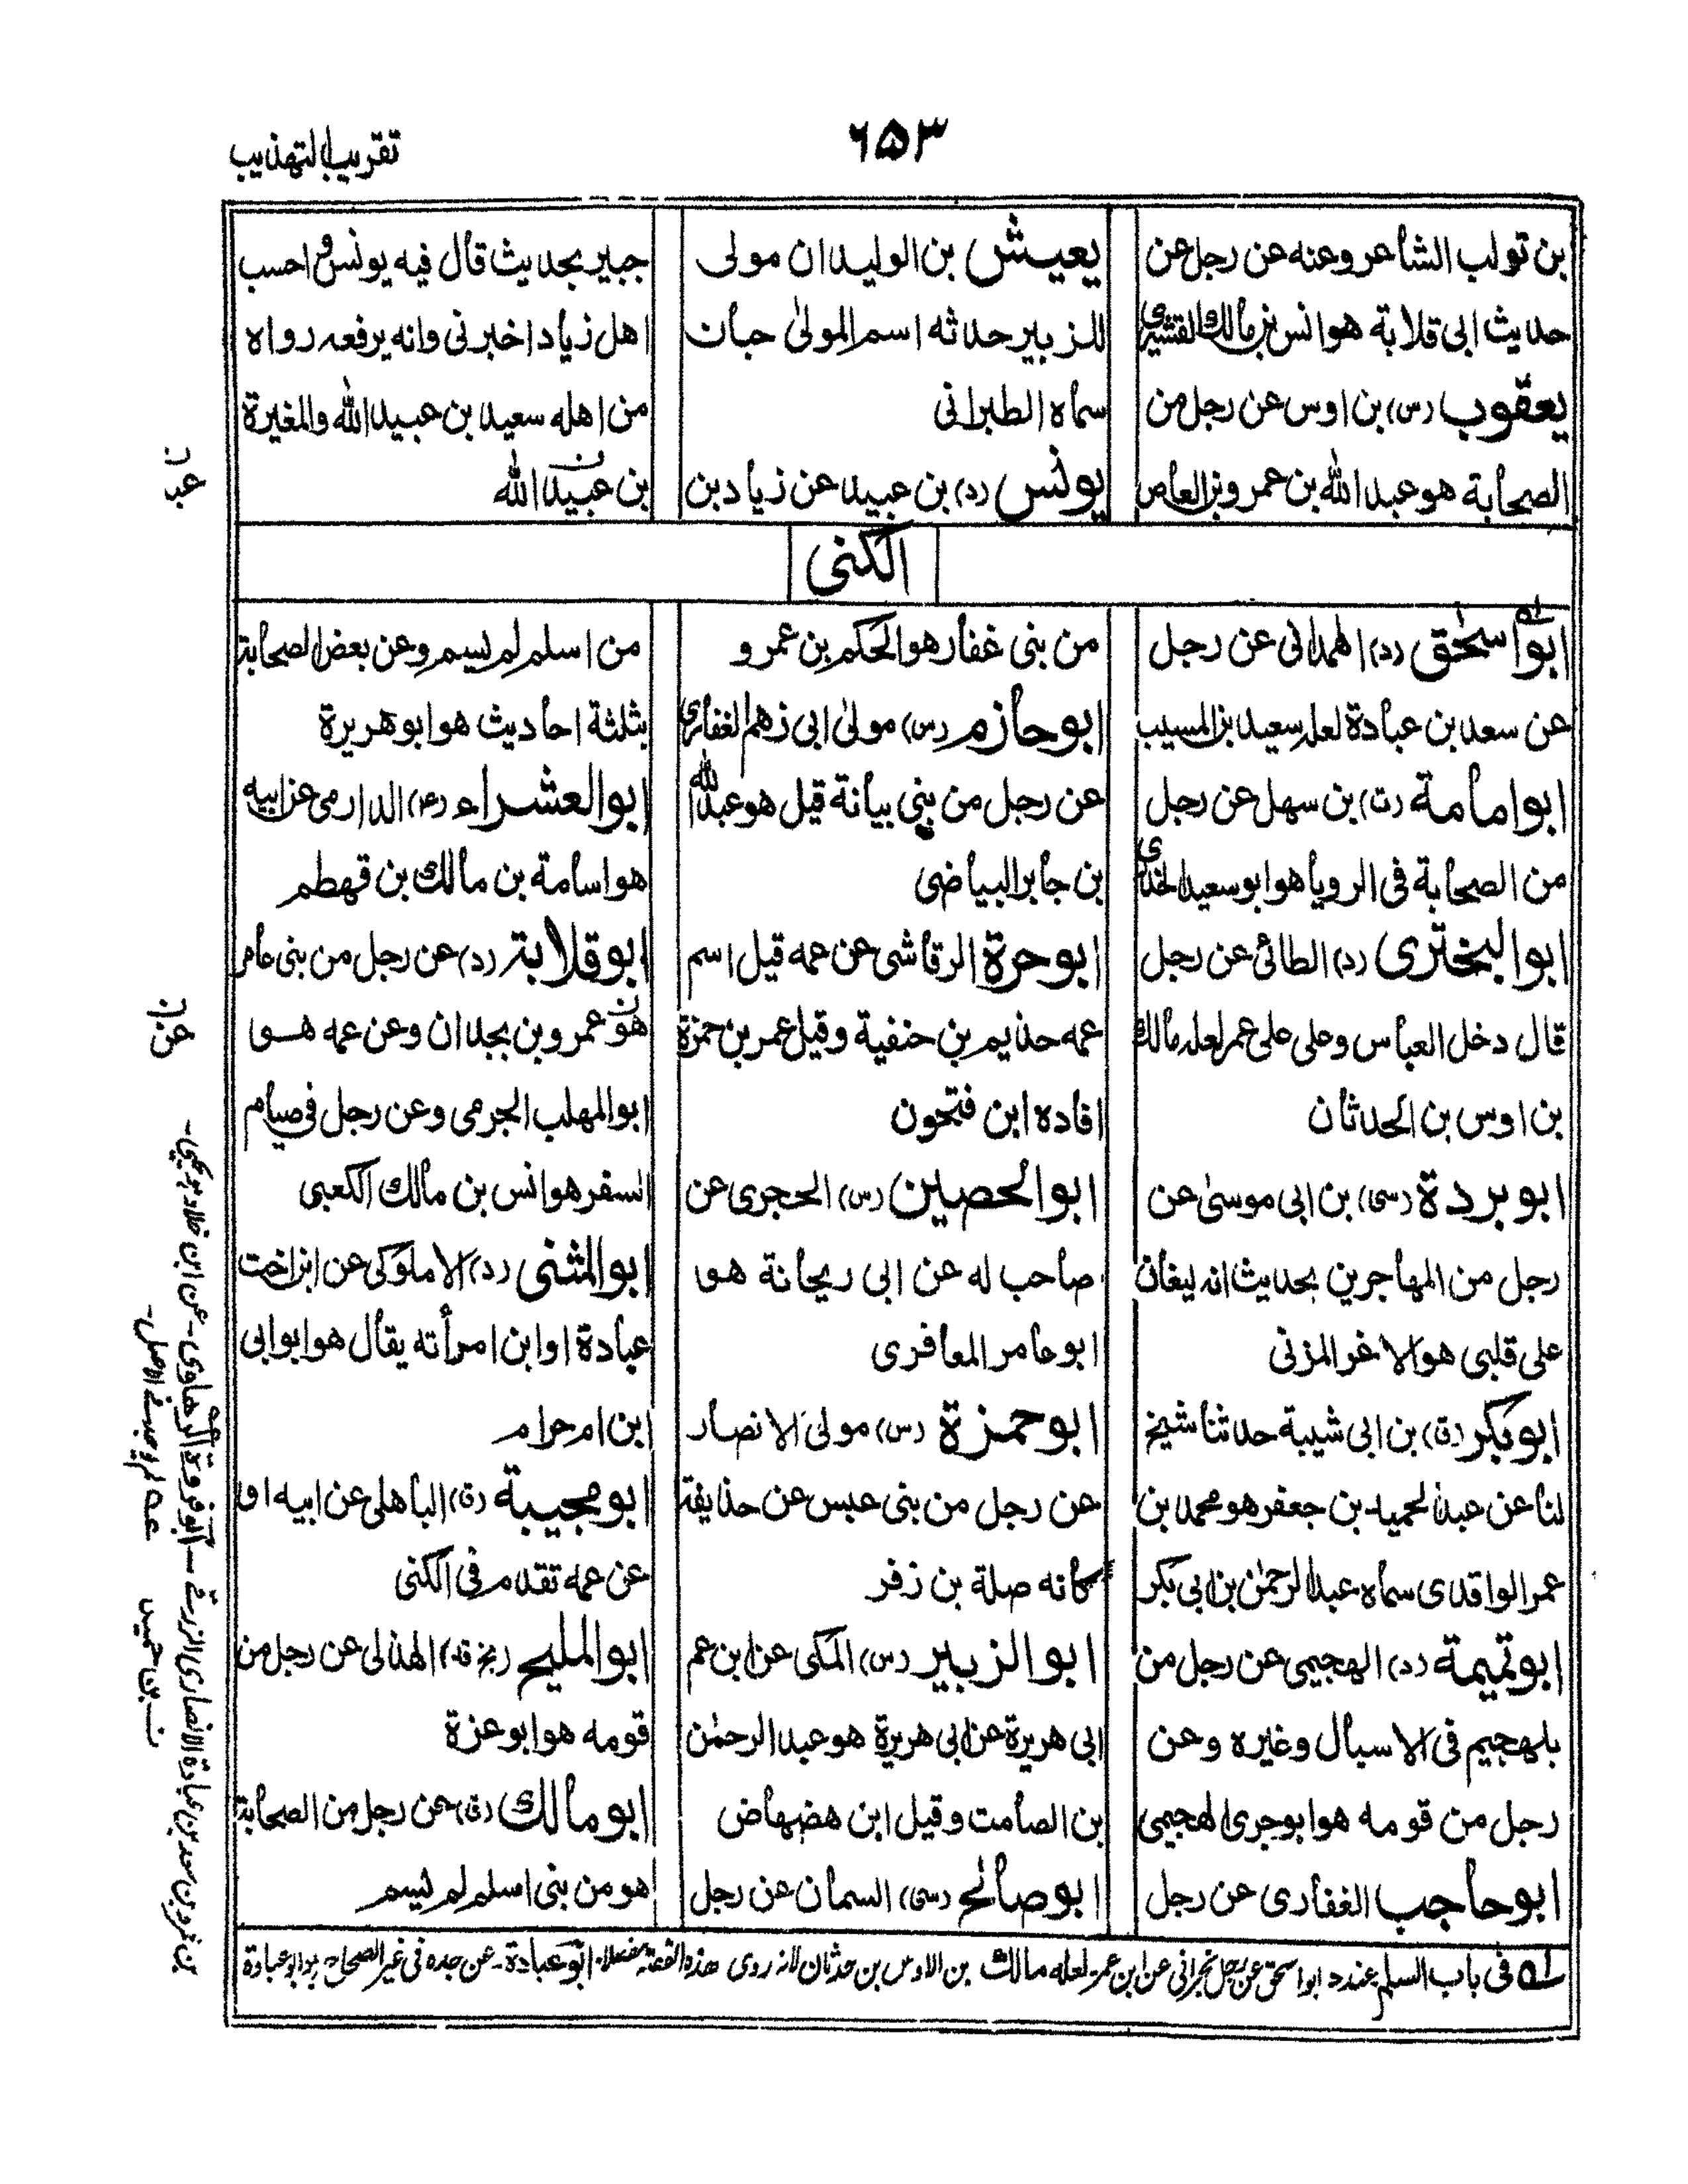 تقریب التهذیب
۶۵۳
بن تولب الشاعر وعنه عن رجل عن
حدیث ابی قلابة هو انس بن مالك القشیری
یعقوب (س) بن اوس عن رجل من
الصحابة هو عبد الله بن عمرو بن العاص
یعیش بن الولید ان مولی
للزبیر حدثه اسم المولیٰ حبان
سماه الطبرانی
یونس (د) بن عبید عن زیاد بن
جبیر بحدیث قال فیه یونس و احسب
اهل زیاد اخبرنی وانه یرفعه رواه
من اهله سعید بن عبید الله والمغیرة
بن عبید الله
الکنی
ابو اسحٰق (د) الهمدانی عن رجل
عن سعد بن عبادة لعله سعید بن المسیب
ابو امامة (ت) بن سهل عن رجل
من الصحابة فی الرویا هو ابو سعید الخدری
ابو البختری (د) الطائی عن رجل
قال دخل العباس وعلی علی عمر لعله مالك
بن اوس بن الحدثان
ابو بردة (سی) بن ابی موسیٰ عن
رجل من المهاجرین بحدیث انه لیغان
علی قلبی هو الاغر المزنی
ابو بکر (ق) بن ابی شیبة حدثنا شیخ
لنا عن عبد الحمید بن جعفر هو محمد بن
عمر الواقدی سماه عبد الرحمٰن بن ابی بکر
ابو تمیمة (د) الهجیمی عن رجل من
بلهجیم فی الاسبال وغیره وعن
رجل من قومه هو ابو جری الهجیمی
ابو حاجب الغفاری عن رجل
من بنی غفار هو الحکم بن عمرو
ابو حازم (س) مولیٰ ابی زهم الغفاری
عن رجل من بنی بیانة قیل هو عبد الله
بن جابر البیاضی
ابو حرة الرقاشی عن عمه قیل اسم
عمه حذیم بن حنفیة وقیل عمر بن حمزة
افاده ابن فتحون
ابو الحصین (س) الحجری عن
صاحب له عن ابی ریحانة هو
ابو عامر المعافری
ابو حمزة (س) مولی الانصار
عن رجل من بنی عبس عن حذیفة
کانه صلة بن زفر
ابو الزبیر (س) المکی عن ابن عم
ابی هریرة عن ابی هریرة هو عبد الرحمٰن
بن الصامت وقیل ابن هضهاض
ابو صالح (سی) السمان عن رجل
من اسلم لم یسم وعن بعض الصحابة
بثلثة احادیث هو ابو هریرة
ابو العشراء (۴) الدارمی عن ابیه
هو اسامة بن مالك بن قهطم
ابو قلابة (د) عن رجل من بنی عامر
هو عمرو بن بجدان وعن عمه هو
ابو المهلب الجرمی وعن رجل فی صیام
السفر هو انس بن مالك الکعبی
ابو المثنی (د) الاملوکی عن ابن اخت
عبادة او ابن امرأته یقال هو ابو ابی
ابن ام حرام
ابو مجیبة (ق) الباهلی عن ابیه او
عن عمه تقدم فی الکنی
ابو الملیح (بخ قد) الهذلی عن رجل من
قومه هو ابو عزة
ابو مالك (ق) عن رجل من الصحابة
هو من بنی اسلم لم یسم
له فی باب السلم عند د ابو اسحٰق عن رجل نجرانی عن ابن عمر لعله مالك بن الاوس بن حدثان لانه روی هذه القصة مفصلا ابو عبادة عن جده فی غیر الصحاح ابو عبادة
بن عمرو بن سعد بن عبادة الانصاری الزرقی ابو فروة الرهاوی عن ابن خلاد هو یحیی